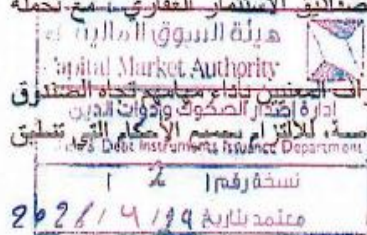 صناديق الاستثمار العقاري، مع تحمله
هيئة السوق المالية
Capital Market Authority
المعنيين بأداء مهامهم تجاه الصندوق
إدارة إصدار الصكوك وأدوات الدين
للالتزام بجميع الأحكام التي تتعلق
Debt Instruments Issuance Department
نسخة رقم ١
معتمد بتاريخ